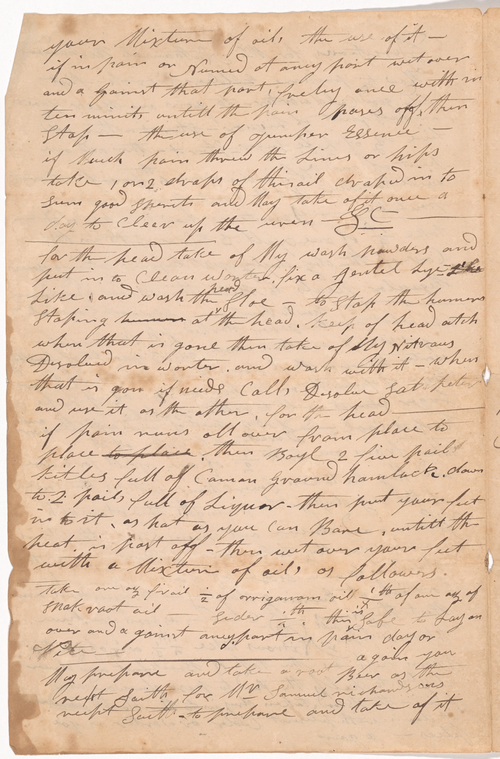 your Mixture of oils the use of it —
if in pain or Numed at aney part wet over
and a gainst that part, freley once with in
ten minits untill the pain pases off, then
Stop — the use of Juniper Essence —
if Much pain threw the Lines or hips
take 1 or 2 draps of this ail draped in to
Sum good Sperits and May take of it once a
day to Clear up the &C
for the head take of My wash powders and
put in to Clean worter, fix a gentel Lye
Like. and wash the head — to Stop the humers
Stoping at the head. of head atch
when that is gone then take of My Nitraus
Disolued in worter. and wash with it — when
that is gon if nede Calls Disolue Salt Peter
and use it as the other, for the head
if pain runs all over from place to
place to place, then Boyl 2 five pail
kitles full of Caman ground hamlock. down
to 2 pails full of Liquor — then put your feet
in to it, as hat as you Can Bare, untill the
heat is past off — then wet over your feet
with a Mixture of oils as followers.
take one oz of ail ½ of orriganam oil of an oz of
Snakroot ail Seder this is Safe to Lay on
over and a gainst aney part in pain day or
Nite — again you
May prepare and take a root Beer as the
recpt Saith for Mr Samuel richards
recpt Saith — to prepare and take of it